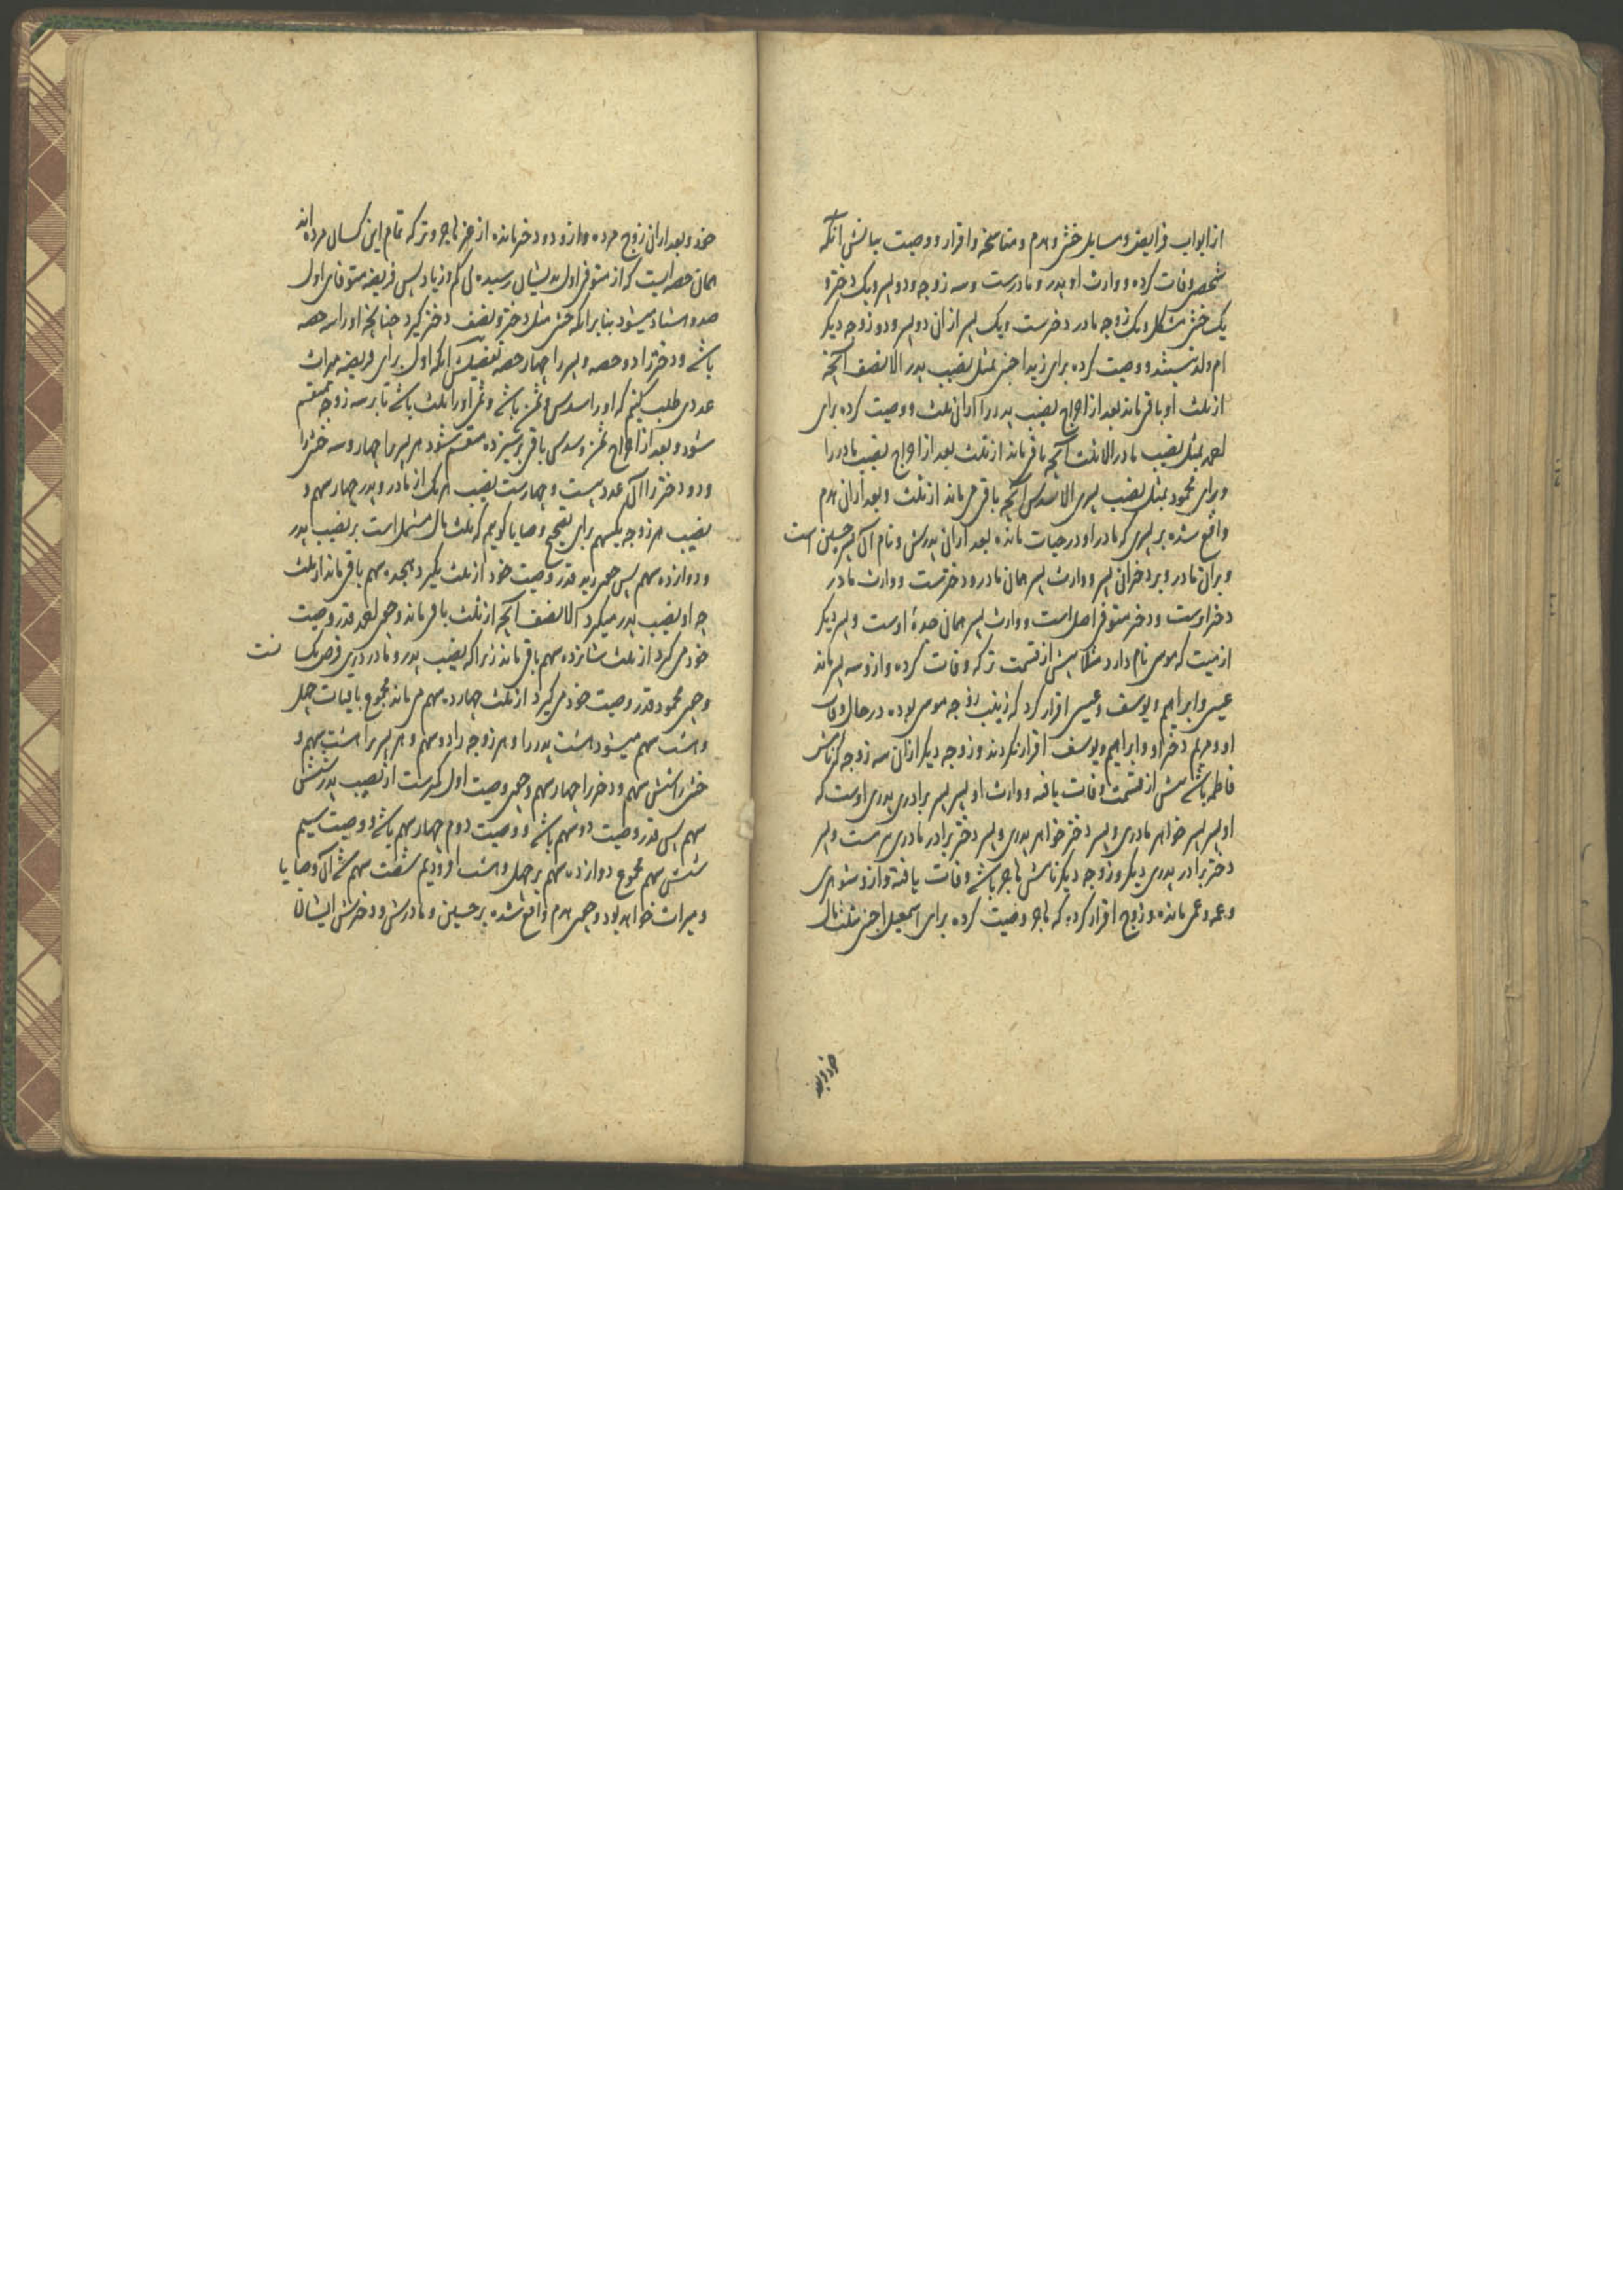 از ابواب فرایض و مسایل خنثی و هدم و مناسخه و اقرار و وصیت بیانش آنکه
شخصی وفات کرده و وارث او پدر و مادرست و سه زوجه و دو پسر و یک دختر و
یک خنثی مشکل و یک زوجه مادر دخترست و یک پسر از ان دو پسر و دو زوجه دیگر
ام ولد نیستند و وصیت کرده برای زید اجنبی بمثل نصیب پدر الا نصف آنچه
از ثلث او باقی ماند بعد از اخراج نصیب پدر را از ان ثلث و وصیت کرده برای
بمثل نصیب مادر الا ثلث آنچه باقی ماند از ثلث بعد از اخراج نصیب مادر را
و برای محمود بمثل نصیب پسری الا سدس آنچه باقی می ماند از ثلث و بعد از ان هدم
واقع شده بر پسری که مادر او در حیات مانده بعد از ان پدرش و نام آن پسر حسین است
و بر ان مادر و بر دختر ان پسر و وارث پسر همان مادر و دخترست و وارث مادر
دختر اوست و دختر متوفی اصل است و وارث پسر همان جدهٔ اوست و پسر دیگر
از میت که موسی نام دارد مثلا پیش از قسمت ترکه وفات کرده و از و سه پسر ماند
عیسی و ابراهیم و یوسف و عیسی اقرار کرد که زینب زوجه موسی بوده در حال وفات
او و مریم دختر او و ابراهیم و یوسف اقرار نکردند و زوجه دیگر از ان سه زوجه که نامش
فاطمه باشد پیش از قسمت وفات یافته و وارث او پسر پسر برادری پدری اوست که
او پسر پسر خواهر مادری و پسر دختر خواهر پدری و پسر دختر برادر مادری هست و پسر
دختر برادر پدری دیگر و زوجه دیگر نامش هاجر باشد وفات یافته و از و شوهری
و عمه و عمی مانده و زوج اقرار کرده که هاجر وصیت کرده برای اسمعیل اجنبی بثلث مال
خود و بعد
خود و بعد از ان زوج مرده و از و دو دختر مانده از غیر هاجر و ترکه تمام این کسان مرده اند
همان حصه ایست که از متوفی اول بدیشان رسیده بی کم و زیاد پس فریضه متوفای اول
صد و هشتاد میشود بنا بر آنکه خنثی مثل دختر و نصف دختر گیرد چنانچه او را سه حصه
باشد و دختر را دو حصه و پسر را چهار حصه تفصیلش آنکه اول برای فریضه میراث
عددی طلب کنیم که او را سدس و ثمن باشد و ثمن او را ثلث باشد تا بر سه زوجه منقسم
شود و بعد از اخراج ثمن و سدس باقی بر سیزده منقسم شود هر پسر را چهار و سه خنثی را
و دو دختر را آن عدد بیست و چهارست نصیب هر یک از مادر و پدر چهار سهم و
نصیب هر زوجه یکسهم برای تصحیح وصایا گوییم که ثلث مال مشتمل است بر نصیب پدر
و دوازده سهم پس چون زید قدر وصیت خود از ثلث بگیرد هجده سهم باقی ماند از ثلث
چه او نصیب پدر میگیرد الا نصف آنچه از ثلث باقی ماند و چون قدر وصیت
خود می گیرد از ثلث شانزده سهم باقی ماند زیرا که نصیب پدر و مادر درین فرض یکسا نست
و چون محمود قدر وصیت خود می گیرد از ثلث چهارده سهم می ماند مجموع باقیات چهل
و هشت سهم میشود هشت پدر را و هر زوجه را دو سهم و هر پسر را هشت سهم و
خنثی را شش سهم و دختر را چهار سهم و چون وصیت اول کمترست از نصیب پدر بشش
سهم پس قدر وصیت دو سهم باشد و وصیت دوم چهار سهم باشد و وصیت سیم
شش سهم مجموع دوازده سهم بر چهل و هشت افزودیم شصت سهم شد آن وصایا
و میراث خواهد بود و چون هدم واقع شده بر حسین و مادرش و دخترش ایشان